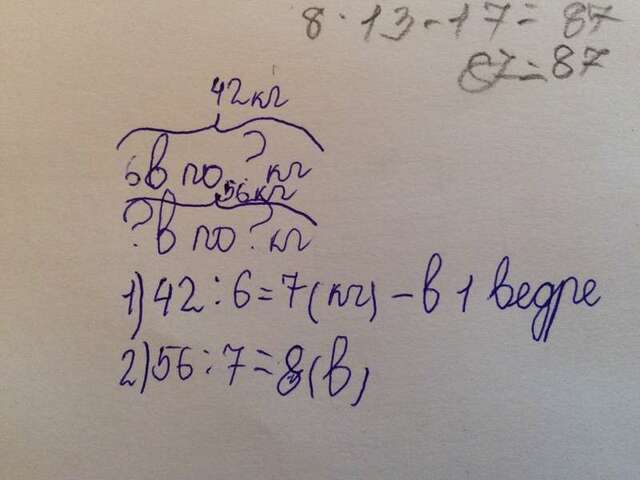 8 · 13 - 17 = 87
87 = 87
42 кг
6 в по ? кг
56 кг
? в по ? кг
1) 42 : 6 = 7 (кг) - в 1 ведре
2) 56 : 7 = 8 (в)